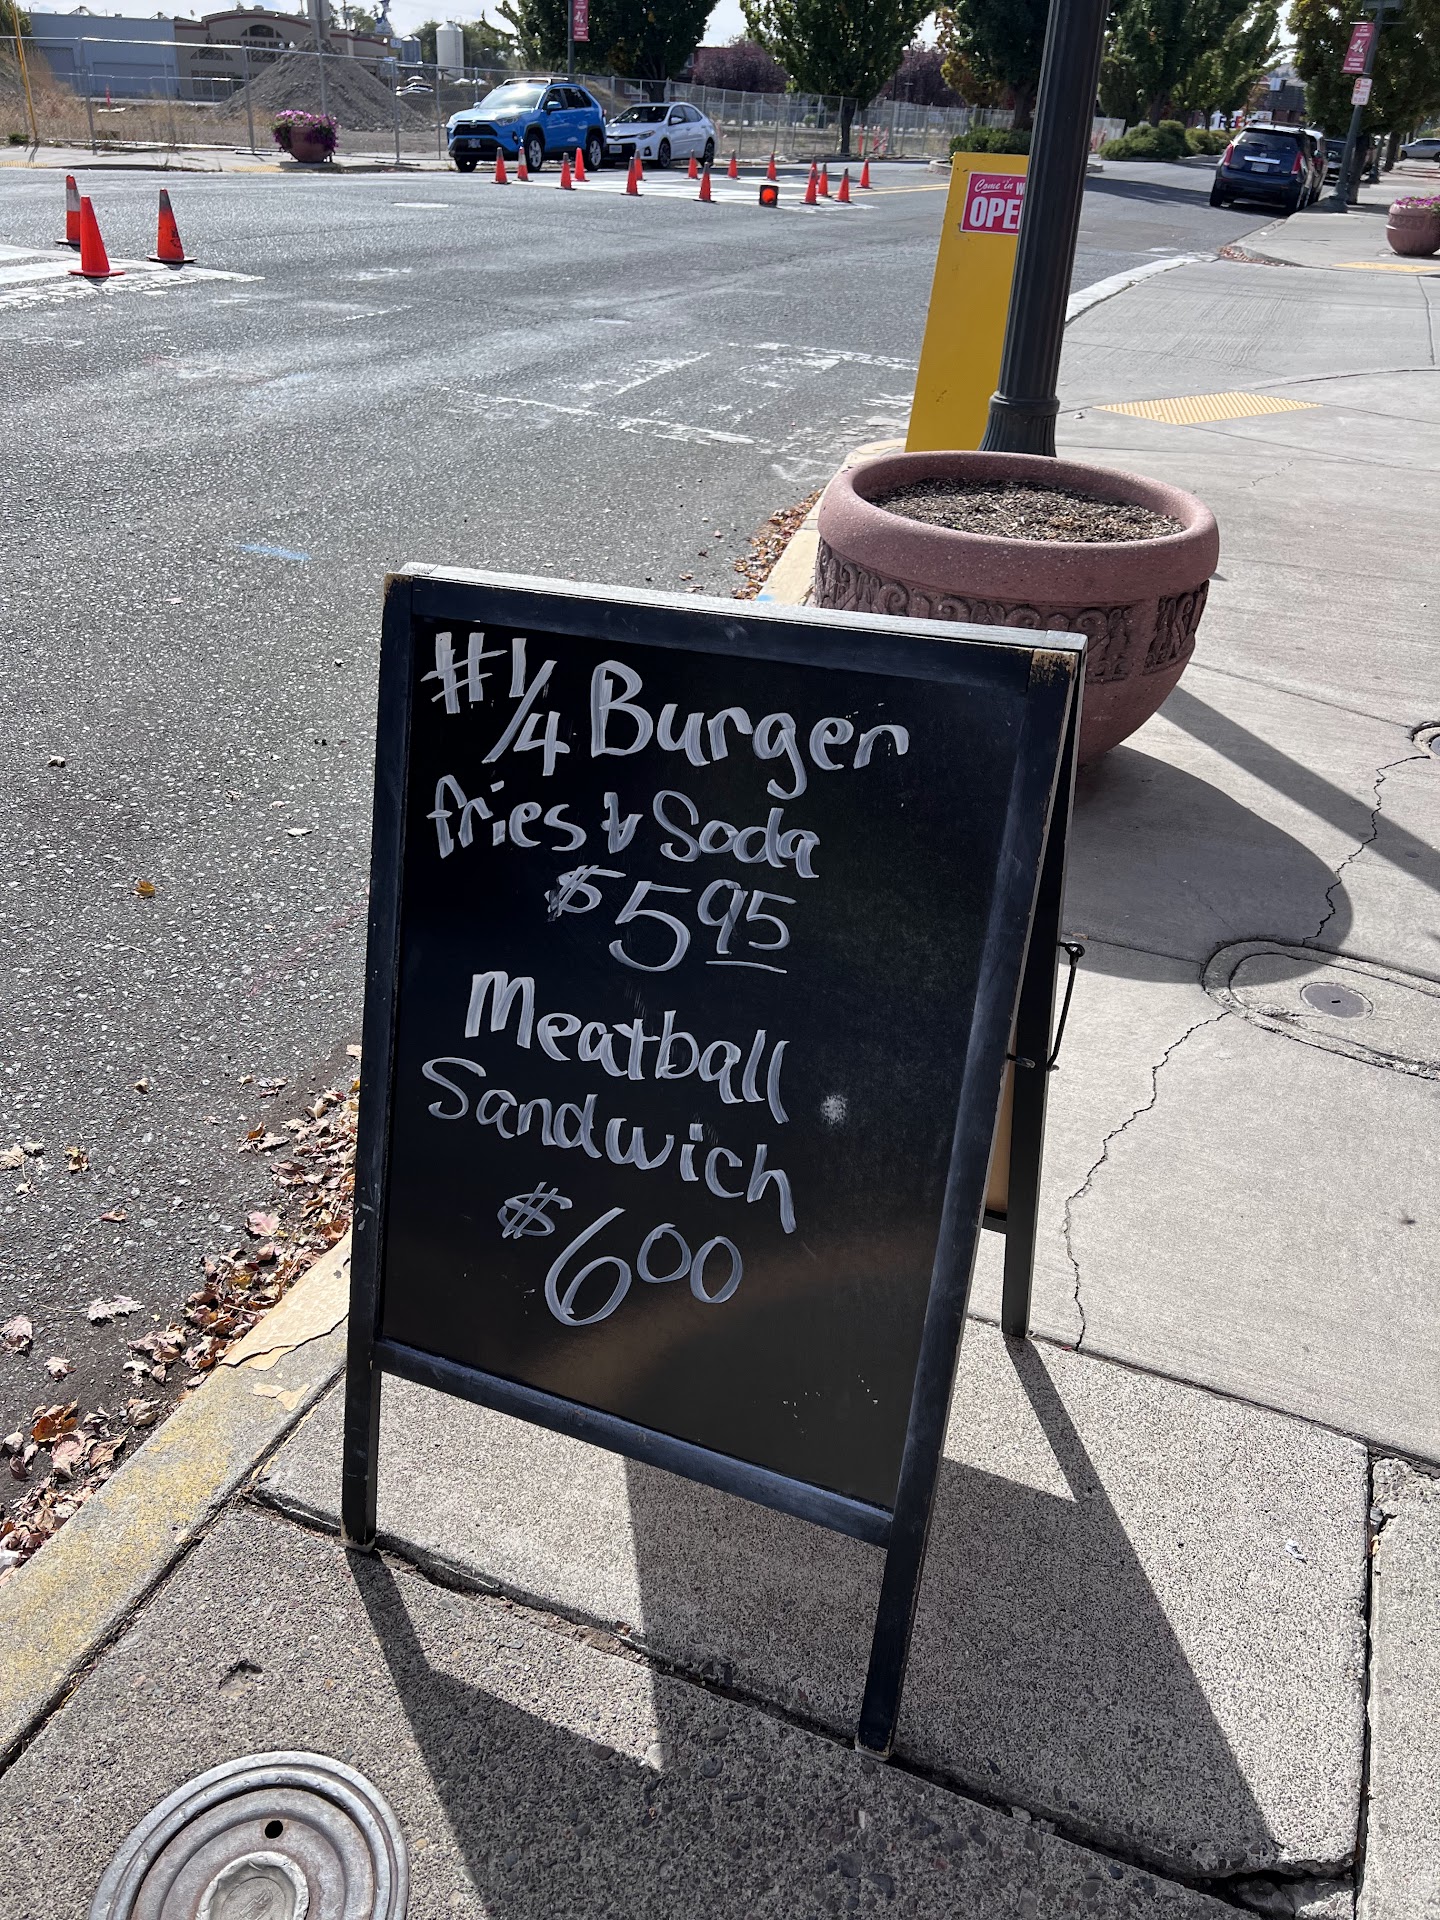 Come in W
OPE
#1/4 Burger
fries & Soda
$5.95
Meatball
Sandwich
$6.00